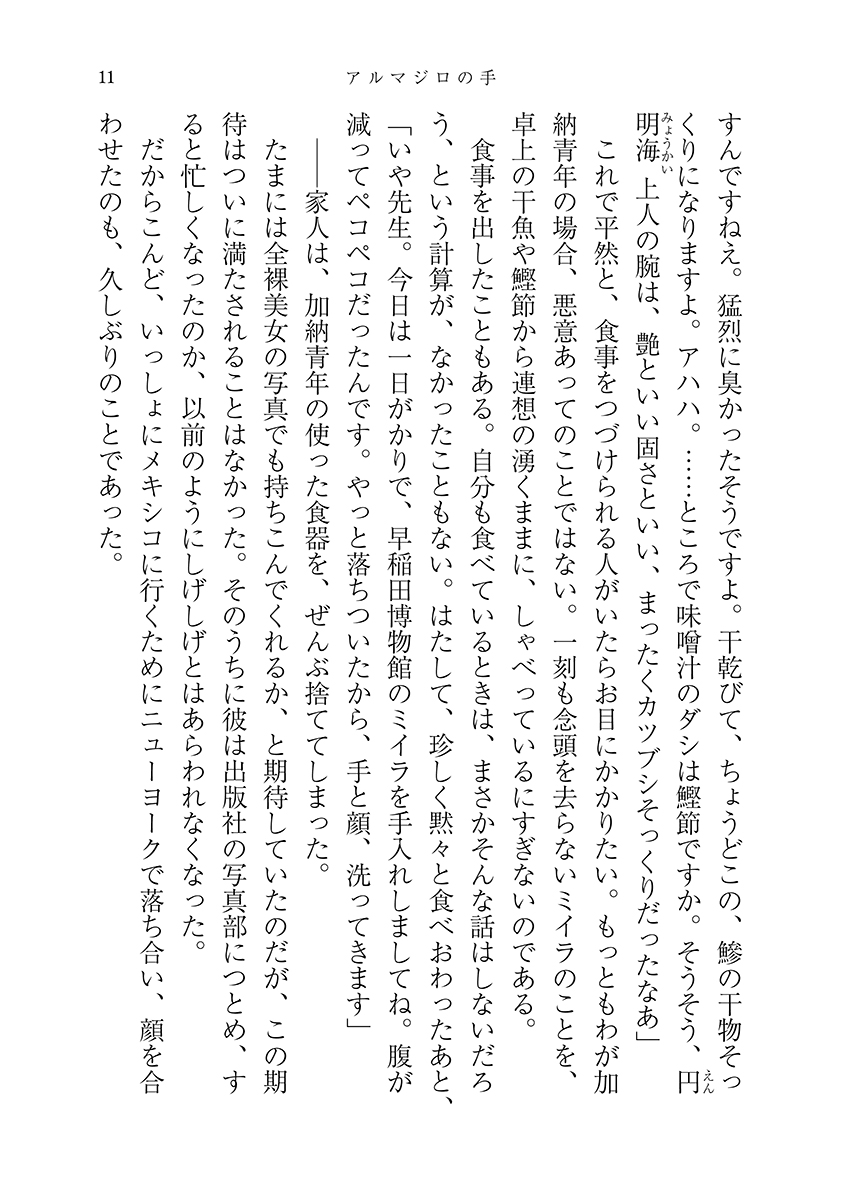 11
アルマジロの手
すんですねえ。猛烈に臭かったそうですよ。干乾びて、ちょうどこの、鰺の干物そっ
くりになりますよ。アハハ。……ところで味噌汁のダシは鰹節ですか。そうそう、円
えん
明海上人の腕は、艶といい固さといい、まったくカツブシそっくりだったなあ」
みょうかい
これで平然と、食事をつづけられる人がいたらお目にかかりたい。もっともわが加
納青年の場合、悪意あってのことではない。一刻も念頭を去らないミイラのことを、
卓上の干魚や鰹節から連想の湧くままに、しゃべっているにすぎないのである。
食事を出したこともある。自分も食べているときは、まさかそんな話はしないだろ
う、という計算が、なかったこともない。はたして、珍しく黙々と食べおわったあと、
「いや先生。今日は一日がかりで、早稲田博物館のミイラを手入れしましてね。腹が
減ってペコペコだったんです。やっと落ちついたから、手と顔、洗ってきます」
――家人は、加納青年の使った食器を、ぜんぶ捨ててしまった。
たまには全裸美女の写真でも持ちこんでくれるか、と期待していたのだが、この期
待はついに満たされることはなかった。そのうちに彼は出版社の写真部につとめ、す
ると忙しくなったのか、以前のようにしげしげとはあらわれなくなった。
だからこんど、いっしょにメキシコに行くためにニューヨークで落ち合い、顔を合
わせたのも、久しぶりのことであった。